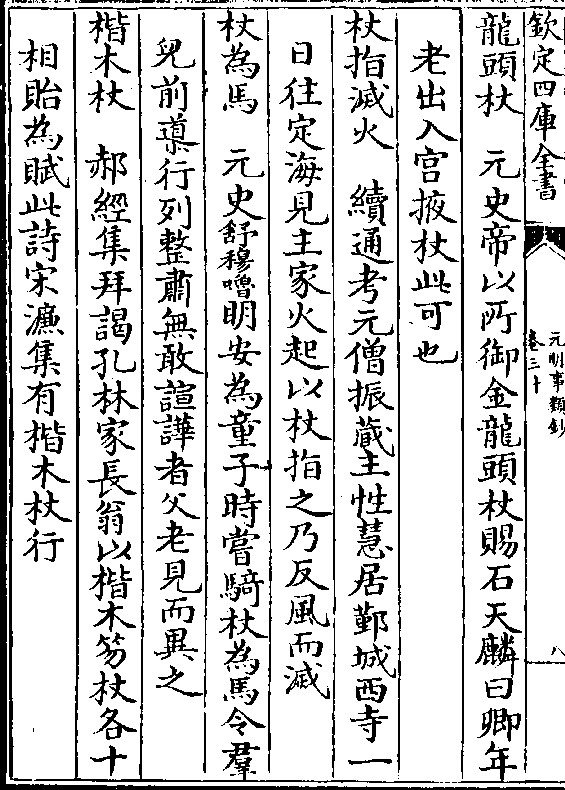 欽定四庫全書
元明事類鈔
卷三十
八
龍頭杖　元史帝以所御金龍頭杖賜石天麟曰卿年
老出入宫掖杖此可也
杖指滅火　續通考元僧振藏主性慧居鄞城西寺一
日往定海見主家火起以杖指之乃反風而滅
杖為馬　元史舒穆嚕明安為童子時嘗騎杖為馬令羣
兒前導行列整肅無敢諠譁者父老見而異之
楷木杖　郝經集拜謁孔林家長翁以楷木笏杖各十
相貽為賦此詩宋濂集有楷木杖行